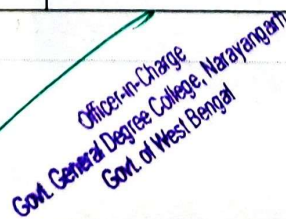 Officer-in-Charge
Govt. General Degree College, Narayangarh
Govt. of West Bengal